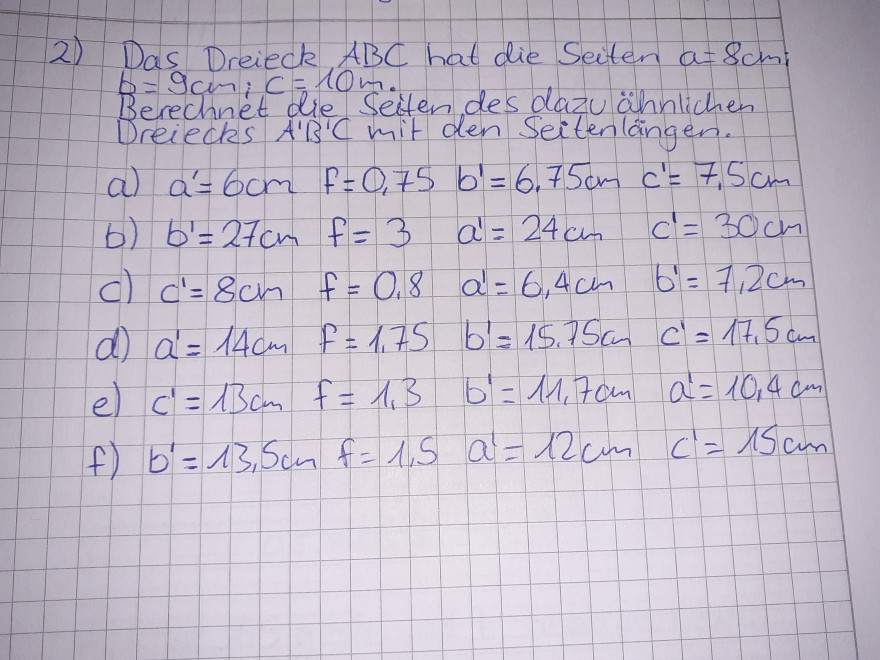 2) Das Dreieck ABC hat die Seiten a=8cm;
b=9cm; c=10m.
Berechnet die Seiten des dazu ähnlichen
Dreiecks A'B'C mit den Seitenlängen.
a) a'=6cm f=0,75 b'=6,75cm c'=7,5cm
b) b'=27cm f=3 a'=24cm c'=30cm
c) c'=8cm f=0,8 a'=6,4cm b'=7,2cm
d) a'=14cm f=1,75 b'=15,75cm c'=17,5cm
e) c'=13cm f=1,3 b'=11,7cm a'=10,4cm
f) b'=13,5cm f=1,5 a'=12cm c'=15cm